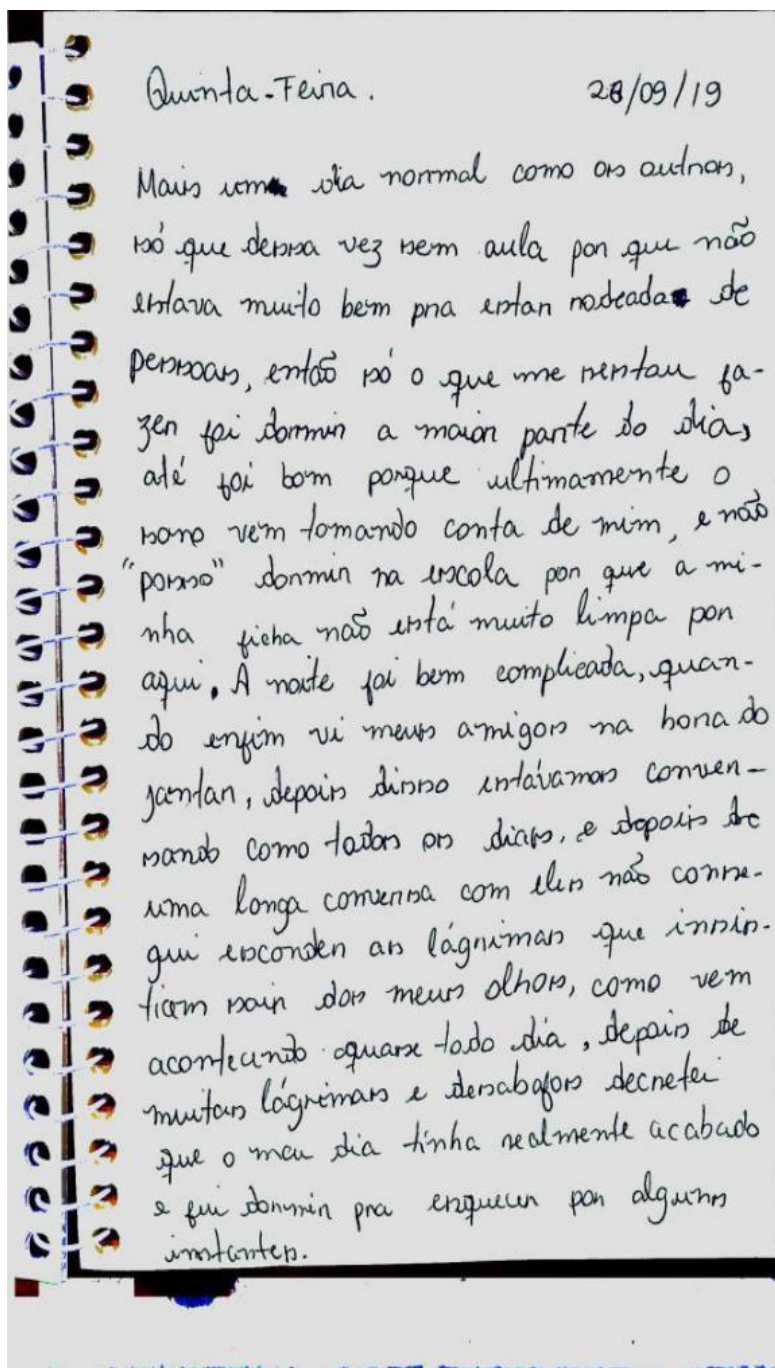 Quinta-Feira. 26/09/19
Mais uma dia normal como os outros,
só que dessa vez sem aula por que não
estava muito bem pra estar rodeada de
pessoas, então só o que me restou fa-
zer foi dormir a maior parte do dia,
até foi bom porque ultimamente o
sono vem tomando conta de mim, e não
"posso" dormir na escola por que a mi-
nha ficha não está muito limpa por
aqui. A noite foi bem complicada, quan-
do enfim vi meus amigos na hora do
jantar, depois disso estávamos conver-
sando como todos os dias, e depois de
uma longa conversa com eles não conse-
gui esconder as lágrimas que insis-
tiam sair dos meus olhos, como vem
acontecendo quase todo dia, depois de
muitas lágrimas e desabafos decretei
que o meu dia tinha realmente acabado
e fui dormir pra esquecer por alguns
instantes.